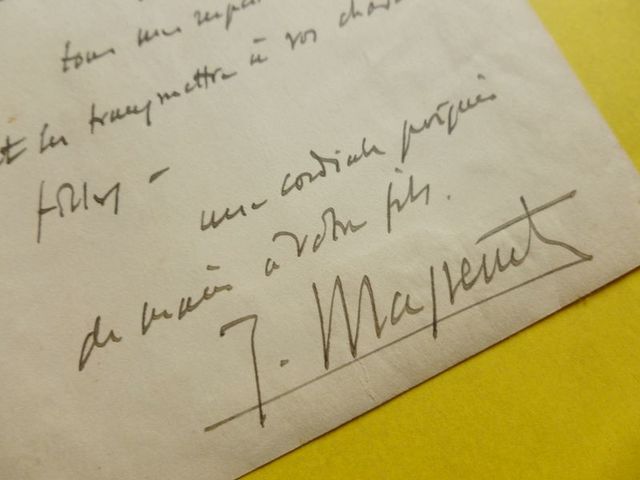 tous mes respe
et les transmettre à vos char
filles –
une cordiale poignée
de mains à votre fils.
J. Massenet